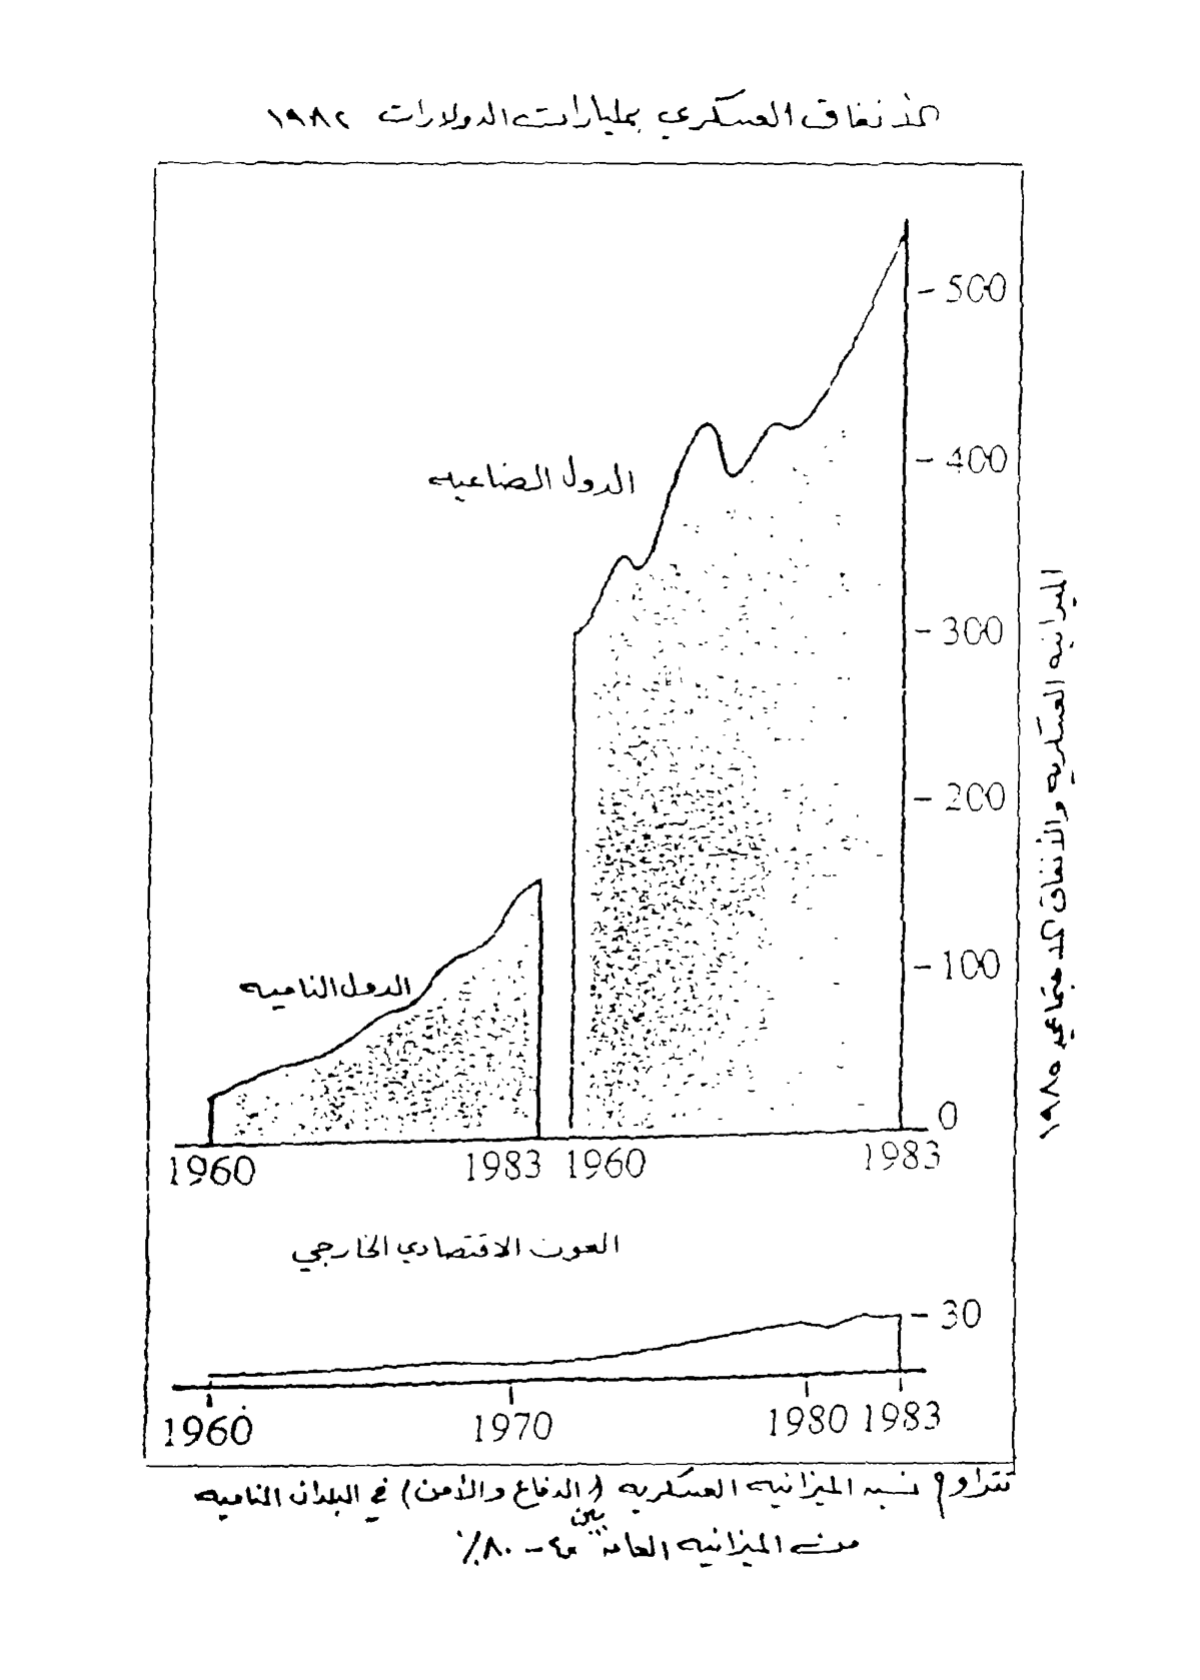 الانفاق العسكري بمليارات الدولارات ١٩٨٢
500
400
الدول الصناعيه
300
200
100
الدول الناميه
0
1960 1983 1960 1983
الميزانيه العسكريه والأنفاق الاجتماعي ١٩٨٥
العون الاقتصادي الخارجي
30
1960 1970 1980 1983
تتراوح نسبه الميزانيه العسكريه (الدفاع والأمن) في البلدان الناميه
بين
من الميزانيه العامه ٤٠ - ٨٠٪